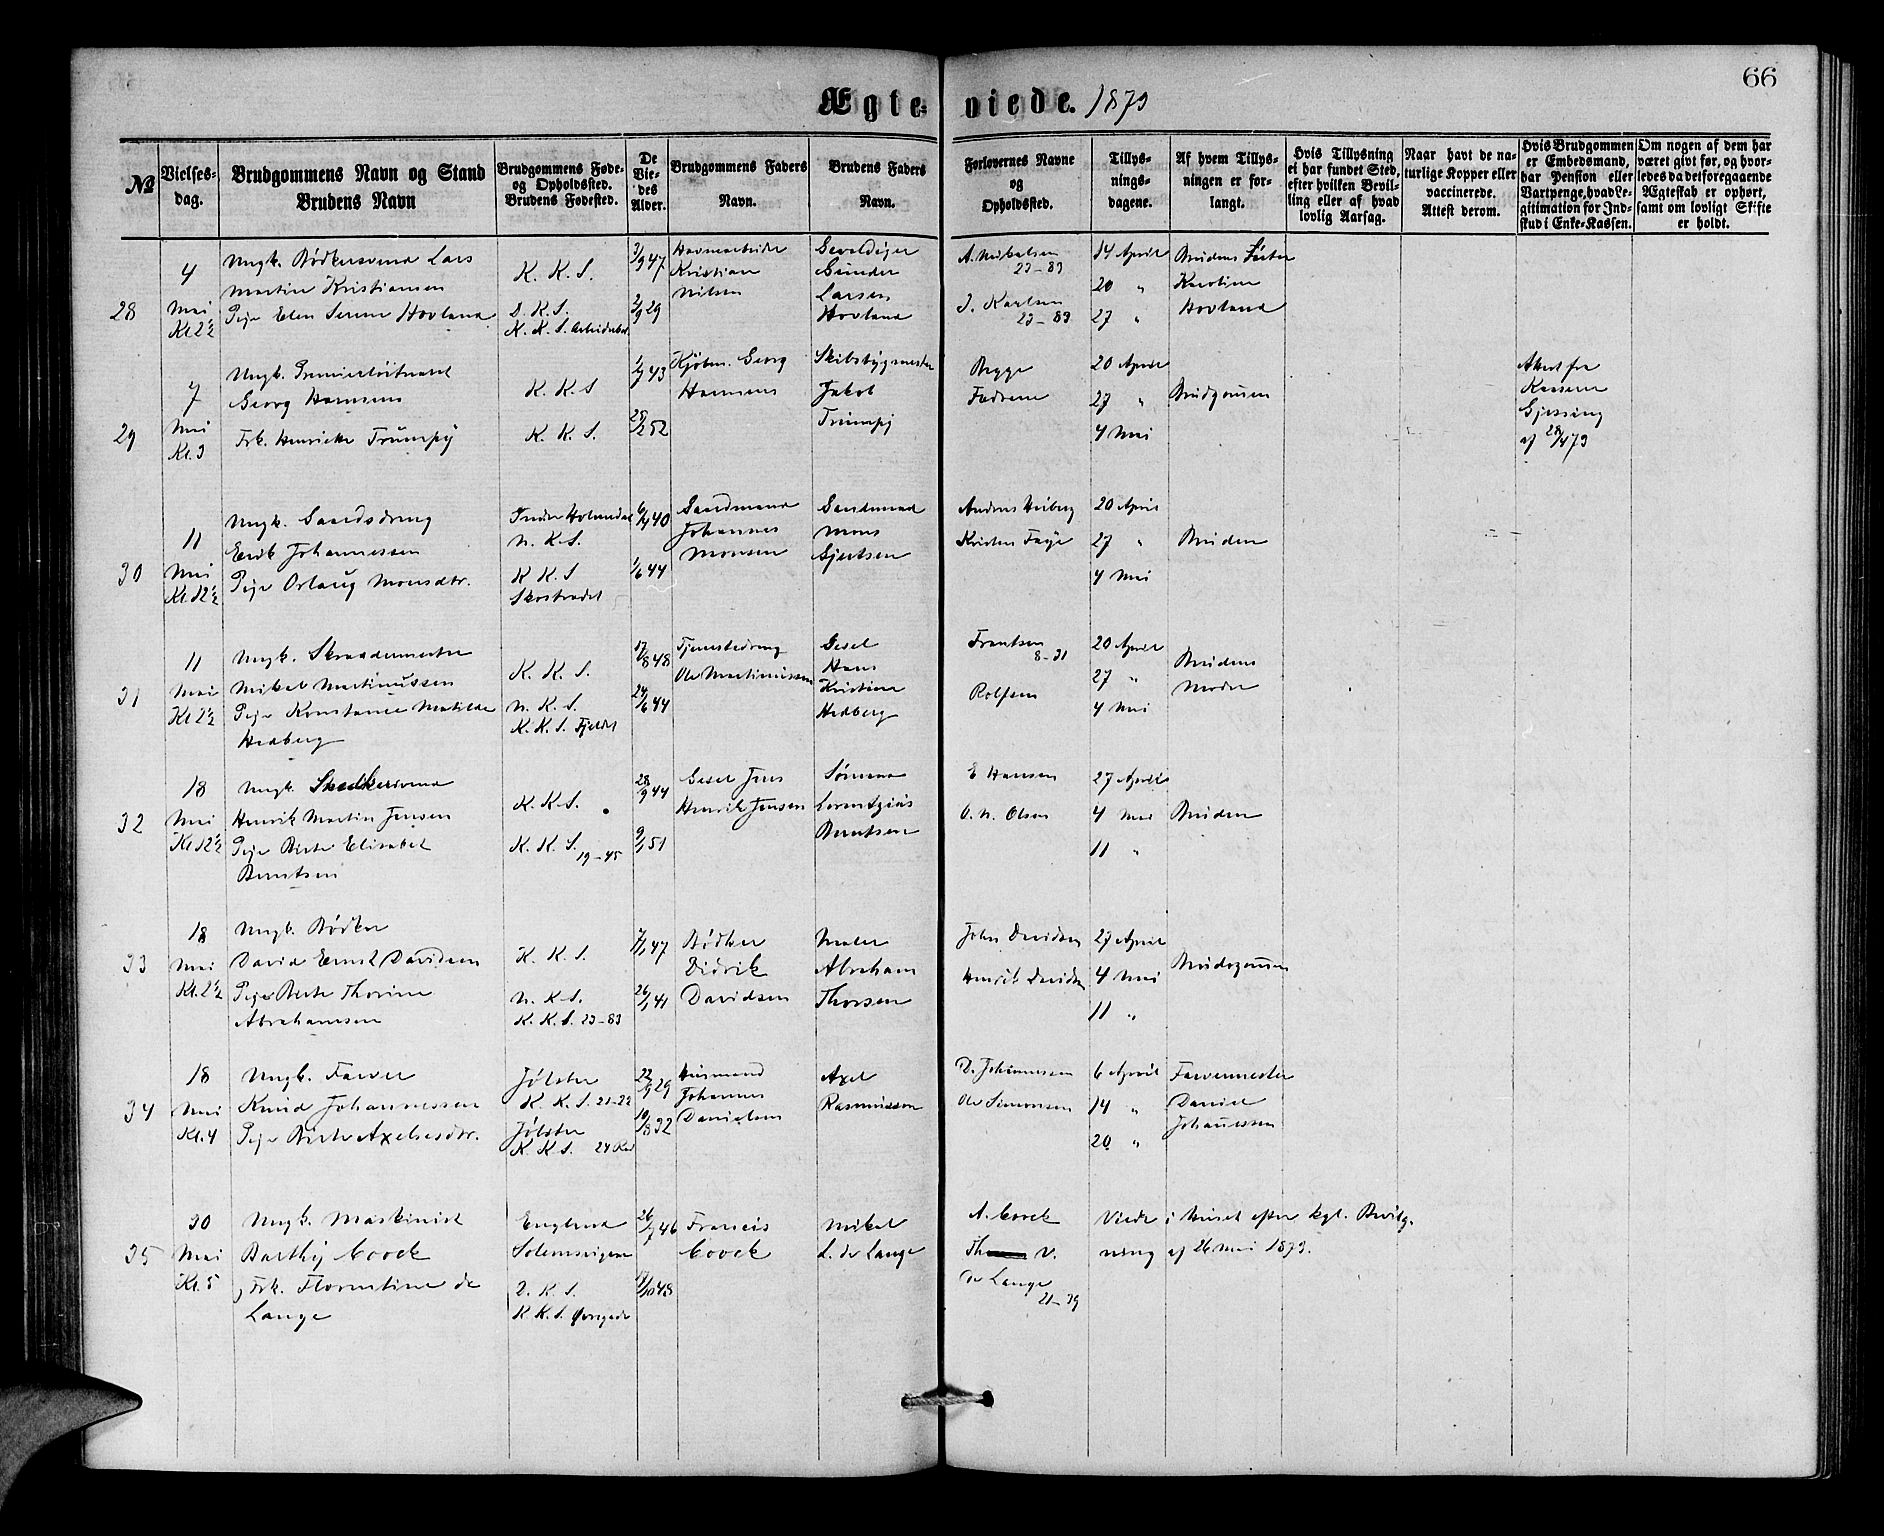 66
Ægteviede. 1879
№
Vielses-dag.
Brudgommens Navn og Stand
Brudens Navn
Brudgommens Føde-og Opholdssted.
Brudens Fødested.
De Vie-des Alder.
Brudgommens Faders Navn.
Brudens Faders Navn.
Forlovernes Navne og Opholdssted.
Tillys-nings-dagene.
Af hvem Tillys-ningen er for-langt.
Hvis Tillysning ei har fundet Sted, efter hvilken Bevil-ling eller af hvad lovlig Aarsag.
Naar havt de na-turlige Kopper eller vaccinerede. Attest derom.
Hvis Brudgommen er Embedsmand, har Pension eller Vartpenge, hvad Le-gitimation for Ind-skud i Enke-Kassen.
Om nogen af dem har været givt før, og hvor-ledes da det foregaaende Ægteskab er ophørt, samt om lovligt Skifte er holdt.
28
4 Mai Kl. 2½
Ungk. Bødkersvend Lars
Martin Kristiansen
Pige Elen Serine Hovland
K. K. S.
D. K. S.
3/9 47
2/9 29
Kristian
Nilsen
Gunder
Larsen
Hovland
A. Mikalsen
23-83
J. Karlsen
23-83
14 April
20 "
27 "
Brudens Søster
Karoline
Hovland
29
7 Mai Kl. 3
Ungk. Premierløitnant
Georg Hansen
Frk. Henriette Trumpy
K. K. S
K. K. S.
1/7 43
25/2 52
Kjøbm. Georg
Hansen
Skibsbygmester
Jakob
Trumpy
Begge
Fædrene
20 April
27 "
4 Mai
Brudgommen
Attest fra
Kasserer
Gjessing
af 28/4 79
30
11 Mai Kl. 12½
Ungk. Gaardsdreng
Erik Johannessen
Pige Orlaug Monsdtr.
N. K. S.
K K. S
6/4 40
1/6 44
Gaardmand
Johannes
Monsen
Gaardmand
Mons
Gjertsen
Anders Heiberg
Kristen Faye
20 April
27 "
4 Mai
Bruden
31
11 Mai Kl. 2½
Ungk. Skræddermester
Mikal Martinussen
Pige Konstance Matilde
Hedberg
K. K. S.
N. K. S.
K. K. S. Fjeldet
17/8 48
24/6 44
Tjenestedreng
Ole Martinussen
Gesel
Hans
Kristian
Hedberg
Frantsen
8-31
Rolfsen
20 April
27 "
4 Mai
Brudens
Moder
32
18 Mai Kl. 12½
Ungk. Snedkersvend
Henrik Martin Jensen
Pige Berte Elisabet
Berntsen
K. K. S.
K. K. S. 19-45
28/9 44
9/1 51
Gesel Jens
Henrik Jensen
Sømand
Berntsen
E Hansen
O. N. Olsen
27 April
4 Mai
11 "
Bruden
33
18 Mai Kl. 2½
Ungk. Bødker
David Ernst Davidsen
Pige Berte Thorine
Abrahamsen
K. K. S.
N. K. S.
K. K. S. 23-83
7/1 47
26/1 41
Bødker
Didrik
Davidsen
Maler
Abraham
Thorsen
John Davidsen
Henrik Davidsen
27 April
4 Mai
11 "
Brudgommen
34
18 Mai Kl. 4
Ungk. Farver
Knud Johannessen
Pige Berte Axelsdtr.
Jølster
K. K. S. 21-22
Jølster
K. K. S.
22/9 29
10/8 32
Husmand
Johannes
Danielsen
Axel
Rasmussen
D. Johannessen
Ole Simonsen
6 April
14 "
20 "
Farvermester
Daniel
Johannessen
35
30 Mai Kl. 5
Ungk. Maskinist
Barthy Coock
Frk. Florentine de
Lange
England
D. K. S.
K K. S. Øvregade
26/7 46
Francis
Coock
Mikal
L. de Lange
A. Coock
de Lange
21-39
Viede i Huset efter kgl. Bevilg-
ning af 26 Mai 1879.